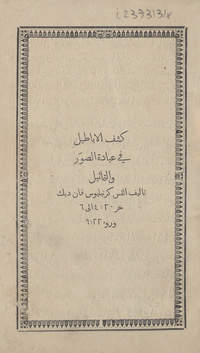 كشف الاباطيل
في عبادة الصور
والتماثيل
تاليف القس كرنيليوس فان ديك
خر ٢٠: ٤ الى ٦
ورو ٢٢: ٩